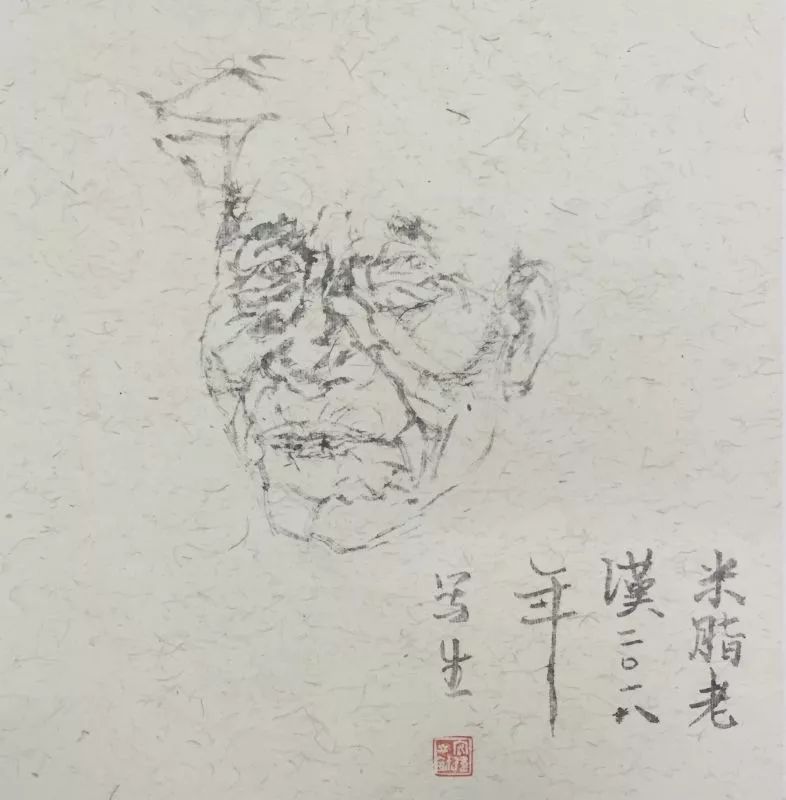 米脂老
漢二〇一八
年
写生